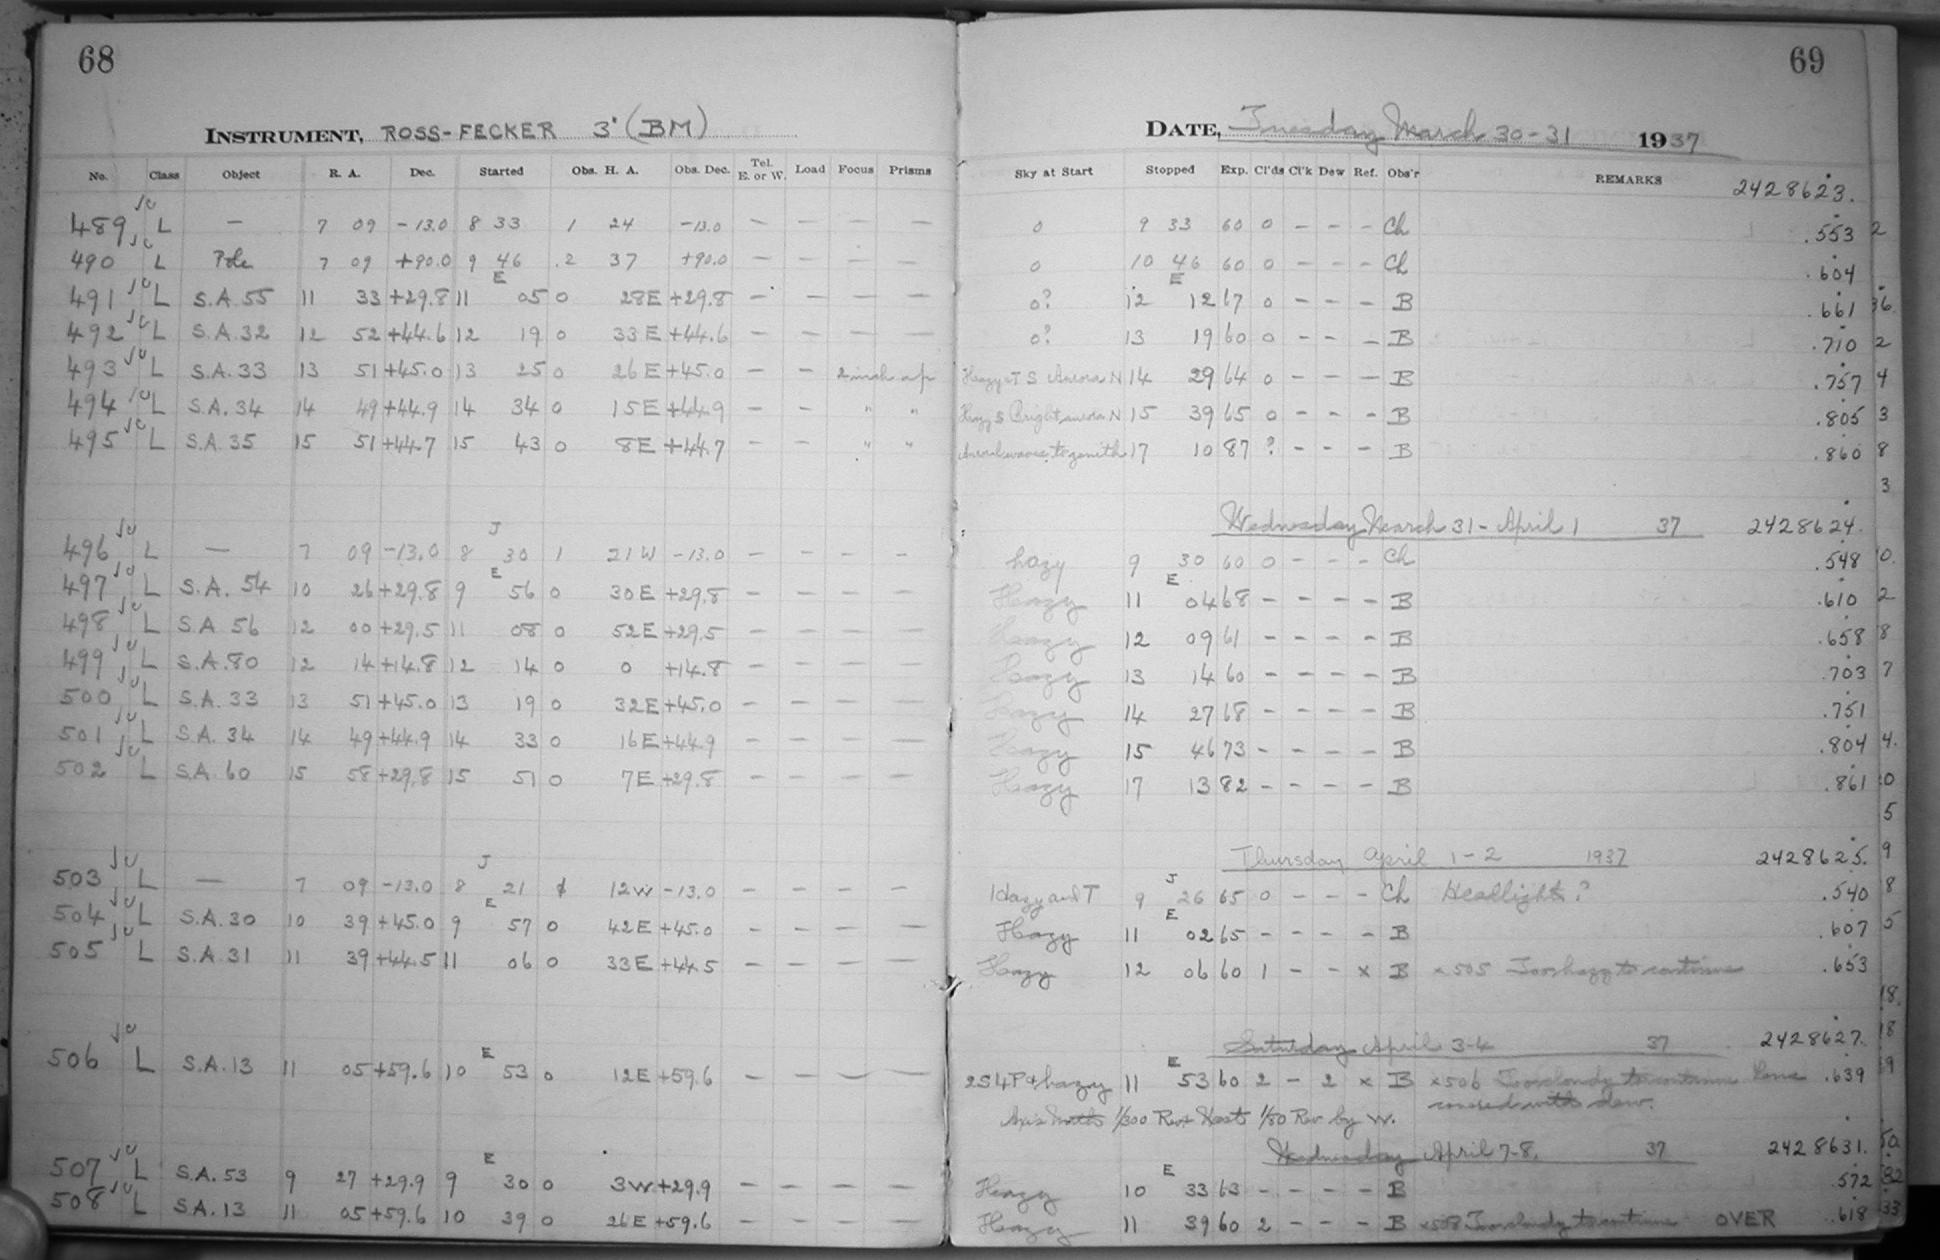 68
INSTRUMENT, ROSS-FECKER 3" (BM)
No. Class Object R. A. Dec. Started Obs. H. A. Obs. Dec. Tel. E. or W. Load Focus Prisms
489 L — 7 09 -13.0 8 33 1 24 -13.0 — — — —
490 L Pole 7 09 +90.0 9 46 2 37 +90.0 — — — —
E
491 L S.A.55 11 33 +29.8 11 05 0 28E +29.8 — — — —
492 L S.A.32 12 52 +44.6 12 19 0 33E +44.6 — — — —
493 L S.A.33 13 51 +45.0 13 25 0 26E +45.0 — — 2 inch ap
494 L S.A.34 14 49 +44.9 14 34 0 15E +44.9 — — " "
495 L S.A.35 15 51 +44.7 15 43 0 8E +44.7 — — " "
J
496 L — 7 09 -13.0 8 30 1 21W -13.0 — — — —
E
497 L S.A. 54 10 26 +29.8 9 56 0 30E +29.8 — — — —
498 L S.A 56 12 00 +29.5 11 08 0 52E +29.5 — — — —
499 L S.A.80 12 14 +14.8 12 14 0 0 +14.8 — — — —
500 L S.A. 33 13 51 +45.0 13 19 0 32E +45.0 — — — —
501 L S.A. 34 14 49 +44.9 14 33 0 16E +44.9 — — — —
502 L S.A. 60 15 58 +29.8 15 51 0 7E +29.8 — — — —
J
503 L — 7 09 -13.0 8 21 1 12W -13.0 — — — —
E
504 L S.A.30 10 39 +45.0 9 57 0 42E +45.0 — — — —
505 L S.A.31 11 39 +44.5 11 06 0 33E +44.5 — — — —
E
506 L S.A.13 11 05 +59.6 10 53 0 12E +59.6 — — — —
E
507 L S.A.53 9 27 +29.9 9 30 0 3W +29.9 — — — —
508 L S.A.13 11 05 +59.6 10 39 0 26E +59.6 — — — —
69
DATE, Tuesday March 30-31 1937
Sky at Start Stopped Exp. Cl'ds Cl'k Dew Ref. Obs'r REMARKS 2428623.
0 9 33 60 0 - - - Ch .553
0 10 46 60 0 - - - Ch .604
E
0? 12 12 67 0 - - - B .661
0? 13 19 60 0 - - - B .710
Hazy + T S Aurora N 14 29 64 0 - - - B .757
Hazy S Bright aurora N 15 39 65 0 - - - B .805
Auroral waves to zenith 17 10 87 ? - - - B .860
Wednesday March 31 - April 1 37 2428624.
hazy 9 30 60 0 - - - Ch .548
E
Hazy 11 04 68 - - - - B .610
Hazy 12 09 61 - - - - B .658
Hazy 13 14 60 - - - - B .703
Hazy 14 27 68 - - - - B .751
Hazy 15 46 73 - - - - B .804
Hazy 17 13 82 - - - - B .861
Thursday April 1-2 1937 2428625.
J
Hazy and T 9 26 65 0 - - - Ch Headlights? .540
E
Hazy 11 02 65 - - - - B .607
Hazy 12 06 60 1 - - x B x505 Too hazy to continue .653
Saturday April 3-4 37 2428627.
E
2S4P + hazy 11 53 60 2 - 2 x B x506 Too cloudy to continue Lens .639
covered with dew.
Axis North 1/300 Rev + West 1/50 Rev by W.
Wednesday April 7-8, 37 2428631.
E
Hazy 10 33 63 - - - - B .572
Hazy 11 39 60 2 - - - B x508 Too cloudy to continue OVER .618